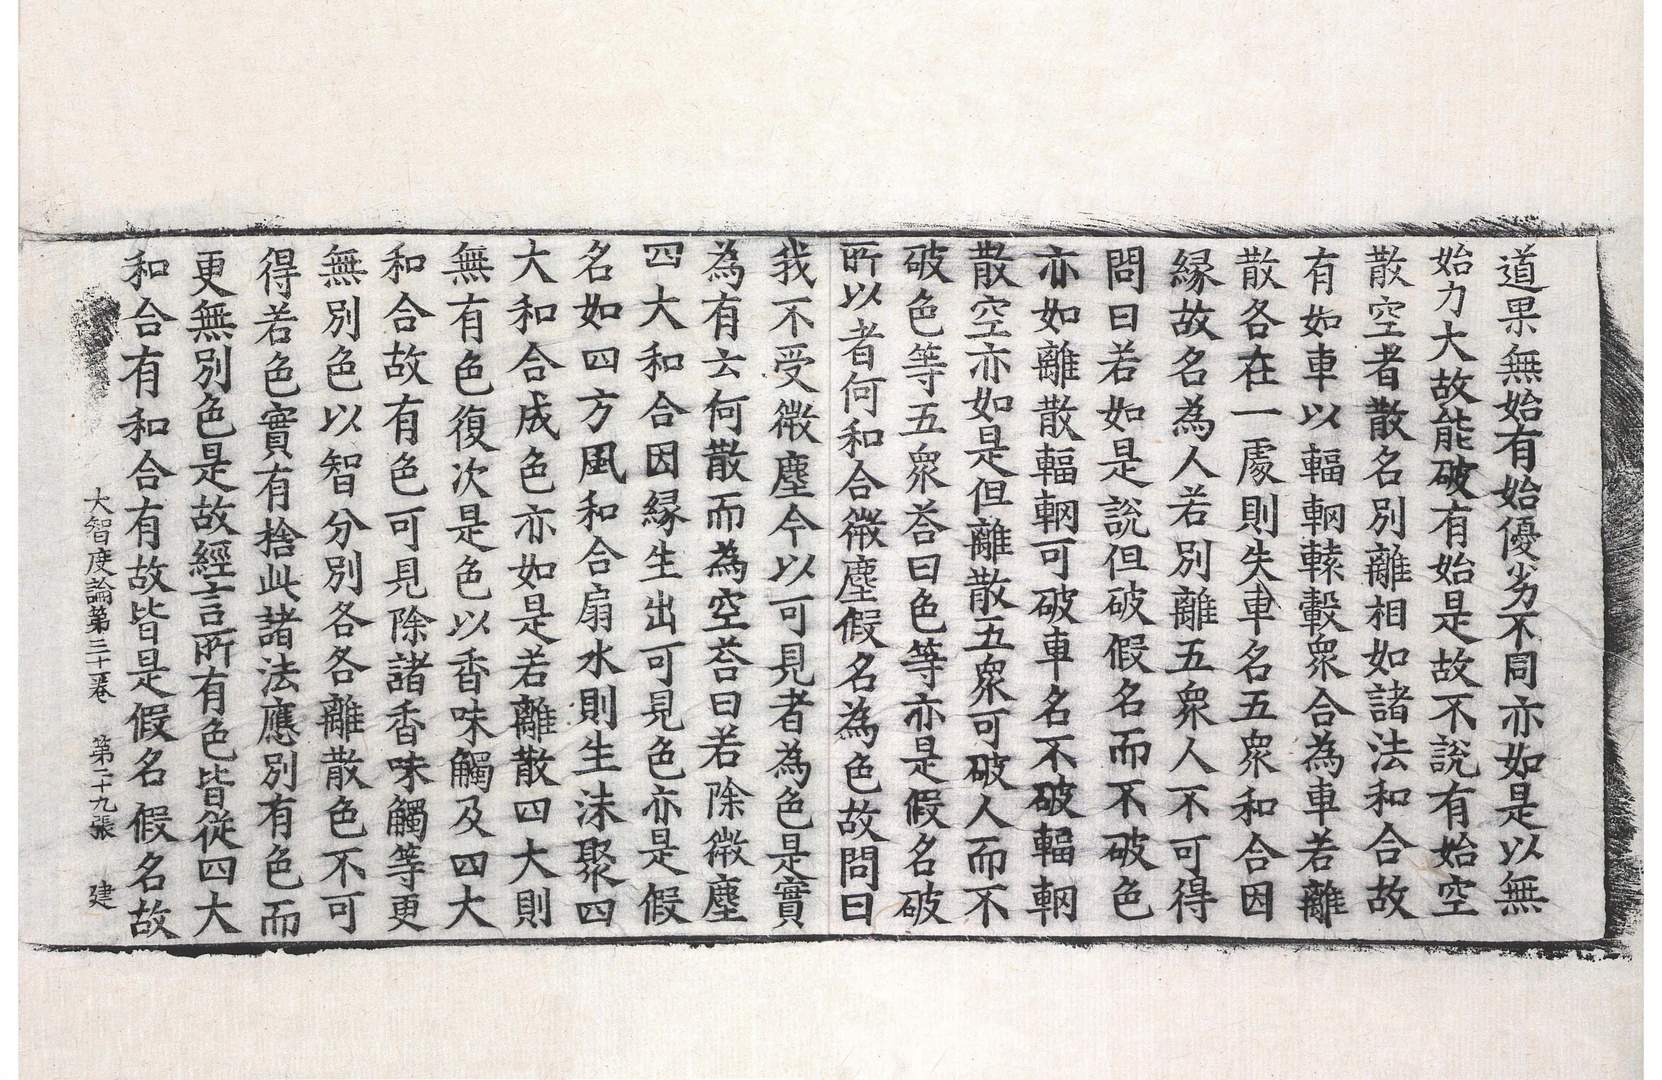 道果無始有始優劣不同亦如是以無
始力大故能破有始是故不說有始空
散空者散名別離相如諸法和合故
有如車以輻輞轅轂衆合為車若離
散各在一處則失車名五衆和合因
緣故名為人若別離五衆人不可得
問曰若如是說但破假名而不破色
亦如離散輻輞可破車名不破輻輞
散空亦如是但離散五衆可破人而不
破色等五衆荅曰色等亦是假名破
所以者何和合微塵假名為色故問曰
我不受微塵今以可見者為色是實
為有云何散而為空荅曰若除微塵
四大和合因緣生出可見色亦是假
名如四方風和合扇水則生沫聚四
大和合成色亦如是若離散四大則
無有色復次是色以香味觸及四大
和合故有色可見除諸香味觸等更
無別色以智分別各各離散色不可
得若色實有捨此諸法應別有色而
更無別色是故經言所有色皆從四大
和合有和合有故皆是假名假名故
大智度論第三十一卷 第二十九張 建